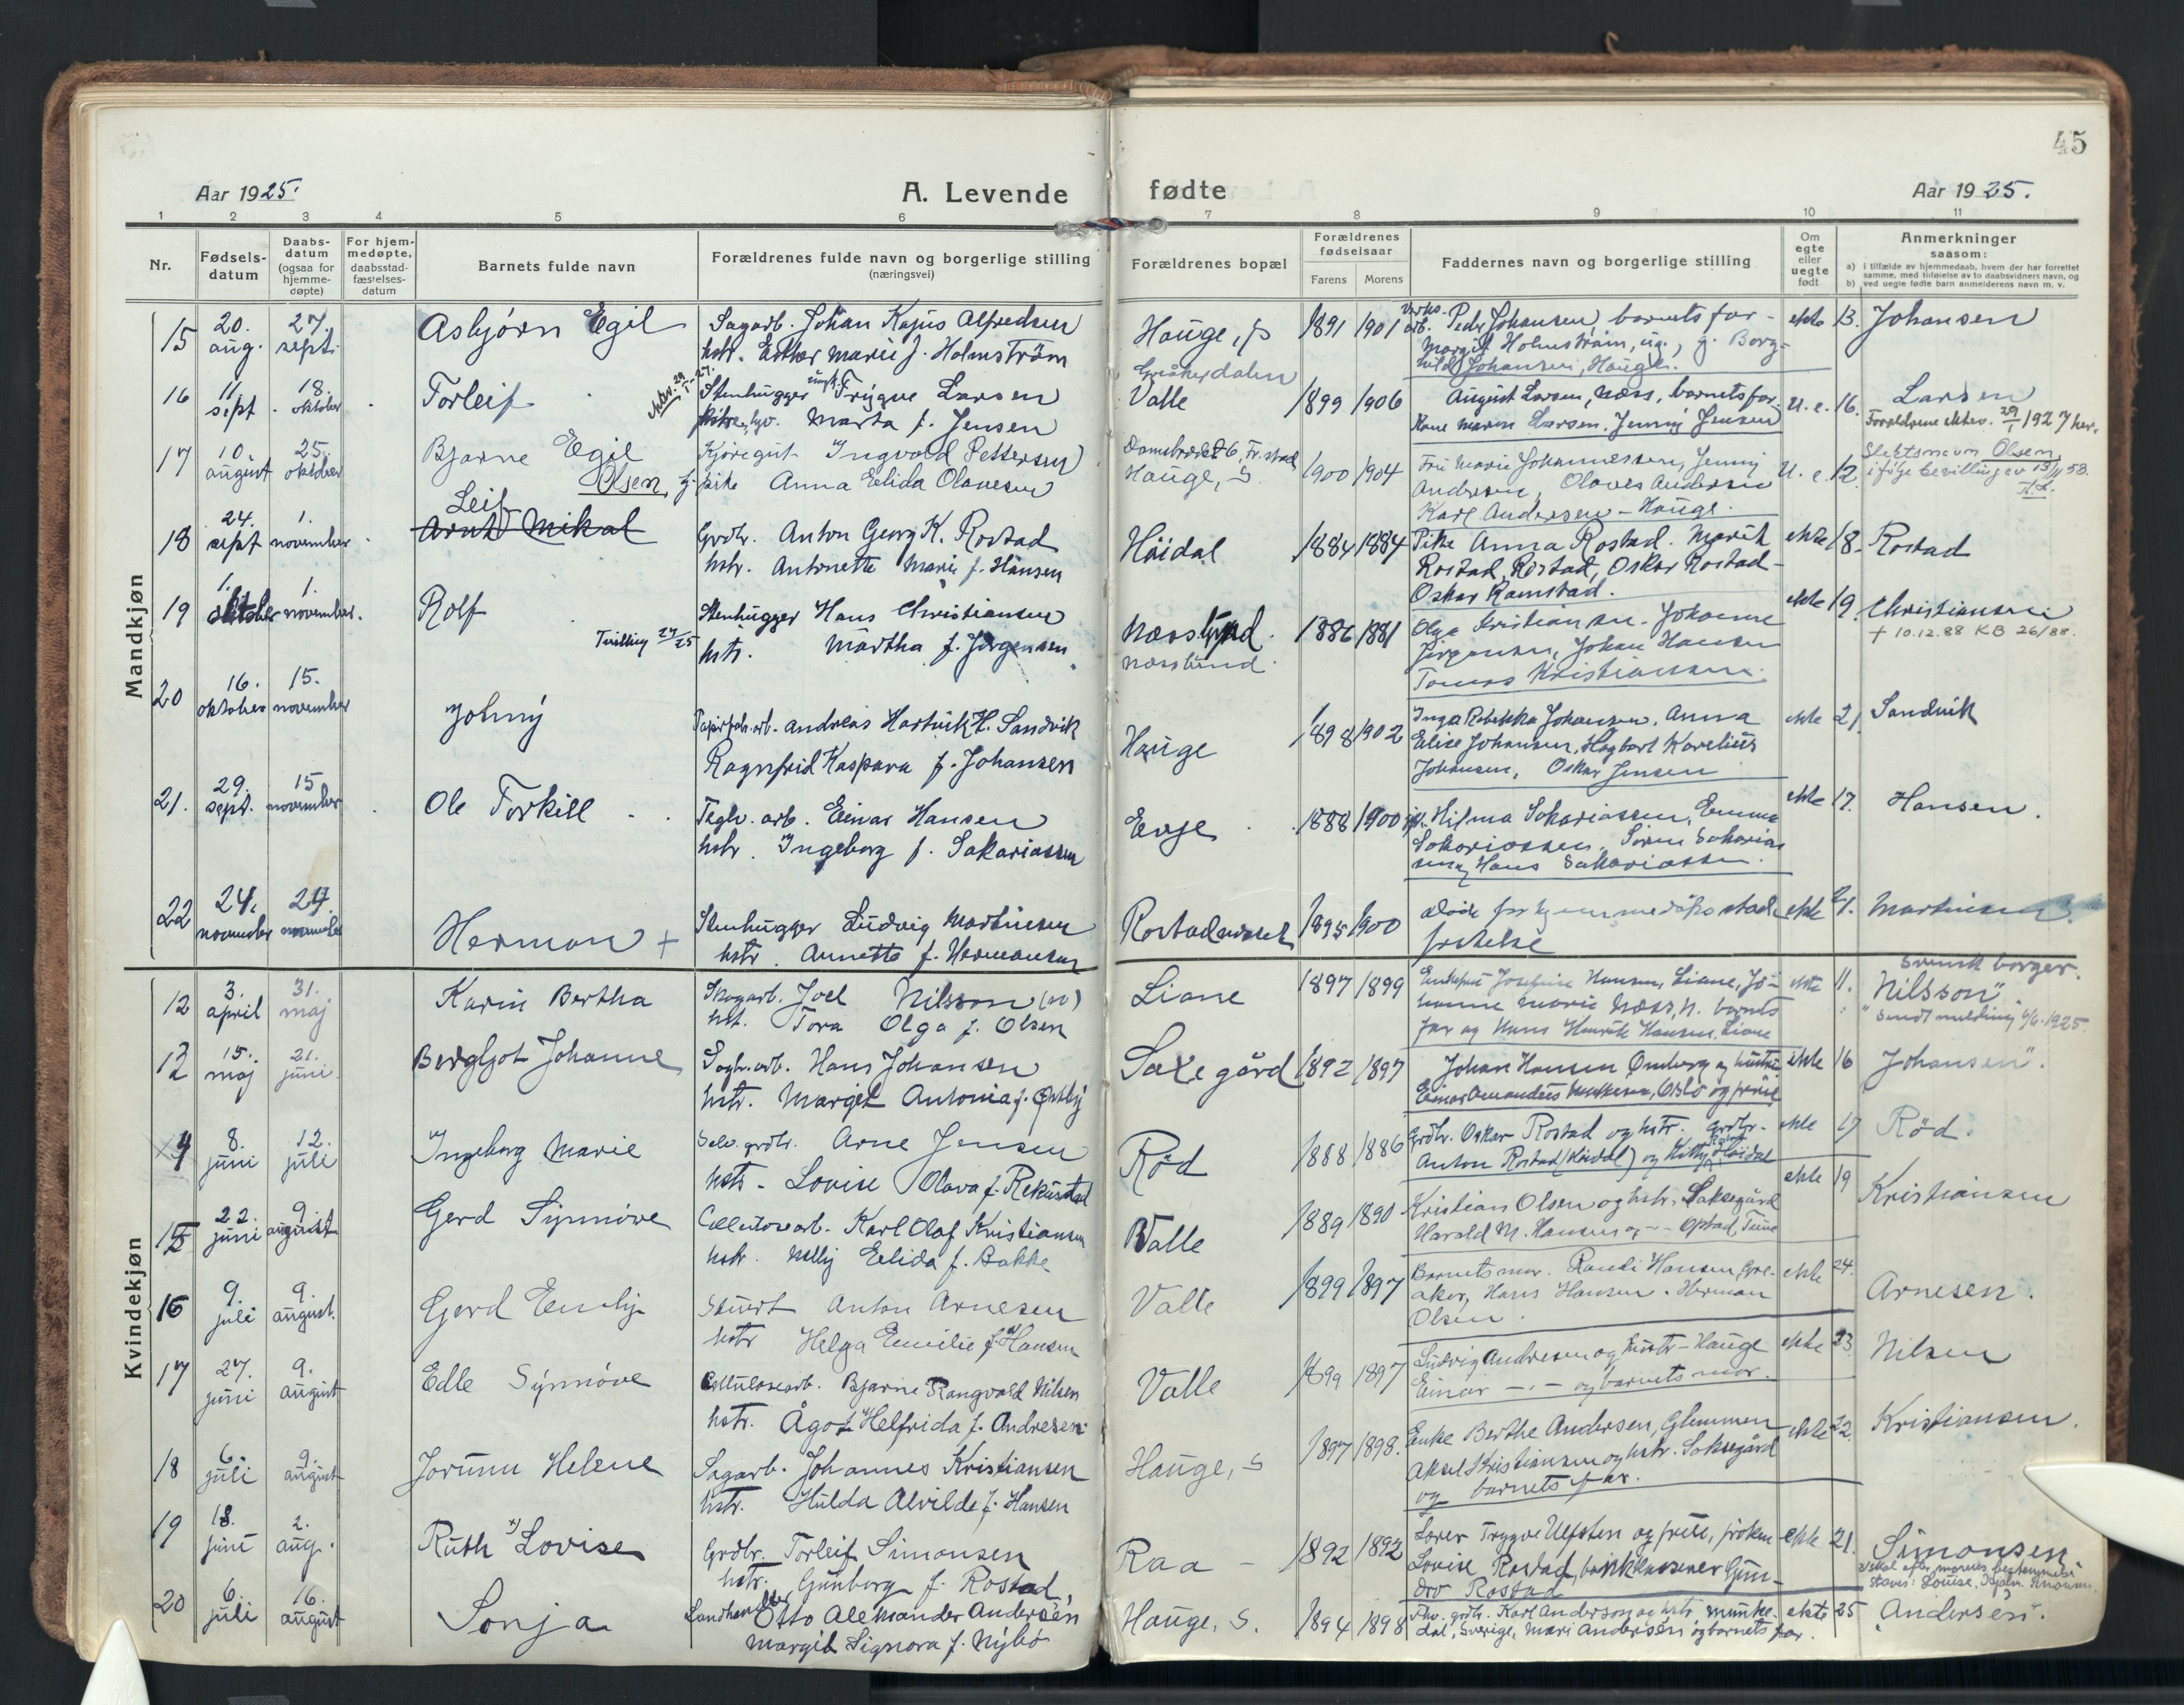 45
Aar 1925.
A. Levende fødte
Aar 1925.
1 2 3 4 5 6 7 8 9 10 11
Nr.
Fødsels-
datum
Daabs-
datum
(ogsaa for
hjemme-
døpte)
For hjem-
medøpte,
daabsstad-
fæstelses-
datum
Barnets fulde navn
Forældrenes fulde navn og borgerlige stilling
(næringsvei)
Forældrenes bopæl
Forældrenes
fødselsaar
Farens Morens
Faddernes navn og borgerlige stilling
Om
egte
eller
uegte
født
Anmerkninger
saasom:
a) i tilfælde av hjemmedaab, hvem der har forrettet
samme, med tilføielse av to daabsvidners navn, og
b) ved uegte fødte barn anmelderens navn m. v.
Mandkjøn
15 20. aug. 27. sept. Asbjørn Egil
Sagarb. Johan Kajus Alfredsen
hstr. Esther Marie f. Holmström
Hauge, S 1891 1901
arb. Peder Johansen, barnets far -
Margit Holmstrøm, ug., g. Borg-
hild Johansen, Hauge.
ekte 13. Johansen
16 11. sept. 18. oktober Torleif
Stenhugger ungk. Trygve Larsen
Marta f. Jensen
Greåkerdalen
Valle 1899 1906
August Larsen, Næss, barnets far.
Kone Maren Larsen. Jenny Jensen
U. e. 16. Larsen
Forældrene ektev. 29/1 1927 her.
17 10. august 25. oktober Bjarne Egil
Olsen,
Kjøregut Ingvald Pettersen
pike Anna Elida Olavesen
Hauge, S. 1900 1904
Fru Marie Johannessen, Jenny
Andresen, Olaves Andersen
Karl Andersen - Hauge.
U. e. 12.
Slektsnavn Olsen
ifølge bevilling av 15/4 53.
18 24. sept 1. november Leif
Arnt Mikal
Grdbr. Anton Georg K. Rostad
hstr. Antonette Marie f. Hansen
Høidal 1884 1884
Pike Anna Rostad. Marit
Rostad, Rostad, Oskar Rostad -
Oskar Ramstad.
ekte 18. Rostad
19 1. oktober 1. november. Rolf
Tvilling 24/25
Stenhugger Hans Christiansen
hstr. Martha f. Jørgensen
Næsslund. 1886 1881
Næsslund.
Olga Kristiansen. Johanne
Jørgensen, Johan Hansen
Tomas Kristiansen.
ekte 19. Christiansen
+ 10.12.88 KB 26/88.
20 16. oktober 15. november Johny
Papirfabr.arb. Andreas Hartvik H. Sandvik
Ragnfrid Kaspara f. Johansen
Hauge 1898 1902
Inga Rebekka Johansen. Anna
Elise Johansen, Hagbart Karelius
Johansen, Oskar Jensen
ekte 21. Sandvik
21. 29. sept. 15 november Ole Torkill
Teglv. arb. Einar Hansen
hstr. Ingeborg f. Sakariassen
Evje 1888 1900
Hilma Sakariassen, Emma
Sakariassen, Søren Sakarias
sen og Hans Sakariassen.
ekte 17. Hansen.
22 24. november 24. november Herman +
Stenhugger Ludvig Martinsen
hstr. Annette f. Hermansen
1895 1900
døde før hjemmedåps stad-
festelse
ekte 21. Martinsen.
Kvindekjøn
12 3. april 31. maj Karin Bertha
Skogarb. Joel Nilsson
hst. Tora Olga f. Olsen
Liane 1897 1899
Enkefru Josefine Hansen, Liane, Jo-
hanne Marie Næss, N. barnets
far og Hans Henrik Hansen, Liane
ekte 11. Svensk borger.
Nilsson".
" Sendt melding 6/6. 1925.
13 15. maj 21. juni Bergljot Johanne
Sagbr.arb. Hans Johansen
hstr. Margit Antonia f. Østby
Saxegård 1892 1897
Johan Hansen Omberg og hustru
ekte 16 Johansen".
4 8. juni 12. juli Ingeborg Marie
Selv. grdbr. Arne Jensen
hstr. - Louise Olava f. Rekustad
Rød 1888 1886
Grdbr. Oskar Rostad og hstr. Grdbr.
Anton Rostad (Høidal) og Kitty Høidal
ekte 17 Rød.
15 22. juni 9. august Gerd Synnøve
Cellulosearb. Karl Olaf Kristiansen
hstr. Nelly Elida f. Bakke
Valle 1889 1890
Kristian Olsen og hstr. Saksegård
Harald M. Hansen og -"- Opstad, Tune
ekte 19 Kristiansen
16 9. juli 9. august. Gerd Emily
Stuert Anton Arnesen
hstr Helga Emilie f. Hansen
Valle 1899 1897
Barnets mor. Randi Hansen, Gre-
aker, Hans Hansen. Herman
Olsen.
ekte 24. Arnesen.
17 27. juni 9. august Edle Synnøve
Cellulosearb. Bjarne Rangvald Nilsen
hstr. Ågot Helfrida f. Andresen
Valle 1899 1897
Ludvig Andresen og hustr - Hauge
Einar -"- og barnets mor.
ekte 23. Nilsen
18 6. juli 9. august Jorunn Helene
Sagarb. Johannes Kristiansen
hstr. Hulda Alvilde f. Hansen
Hauge, S 1897 1898.
Enke Berthe Andersen, Glemmen
Aksel Kristiansen og hstr. Saksegård
og barnets far.
ekte 22. Kristiansen.
19 18. juni 2. aug. Ruth x) Lovise
Grdbr. Torleif Simonsen
hstr. Gunborg f. Rostad,
Raa - 1892 1892
Lærer Trygve Ulfsten og frue, frøken
Lovise Rostad, bankkasserer Gun-
dro Rostad
ekte 21. Simonsen.
x) skal efter morens bestemmelse
staves: Louise.
20 6. juli 16. august Sonja
Otto Aleksander Andersen
Margit Signora f. Nybø
Hauge, S. 1894 1898
Karl Anderson og hstr, Munke-
dal, Sverige, Mari Andersen og barnets far.
ekte 25 Andersen".